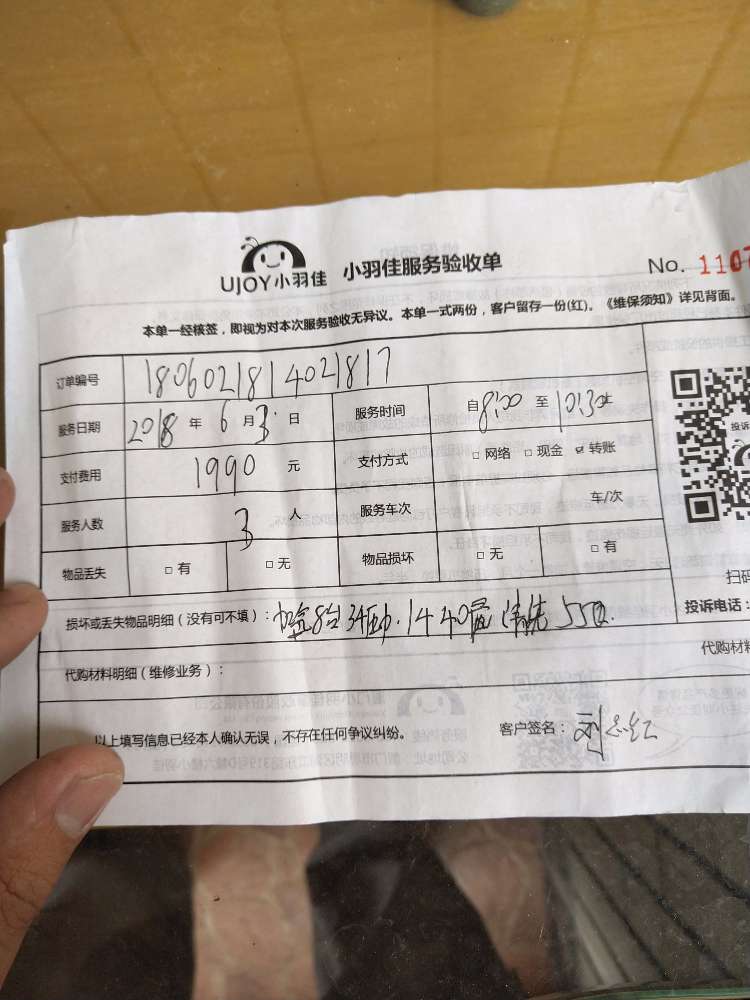 UJOY小羽佳 小羽佳服务验收单 No. 1107
本单一经核签，即视为对本次服务验收无异议。本单一式两份，客户留存一份(红)。《维保须知》详见背面。
订单编号 1806021814021817
服务日期 2018 年 6 月 3 日 服务时间 自 8:00 至 10:30
支付费用 1990 元 支付方式 □ 网络 □ 现金 ☑ 转账
服务人数 3 人 服务车次 车/次
物品丢失 □ 有 □ 无 物品损坏 □ 无 □ 有
损坏或丢失物品明细（没有可不填）： 8台 1440 清洗 550
代购材料明细（维修业务）：
以上填写信息已经本人确认无误，不存在任何争议纠纷。 客户签名：
投诉
扫码
投诉电话：
代购材料